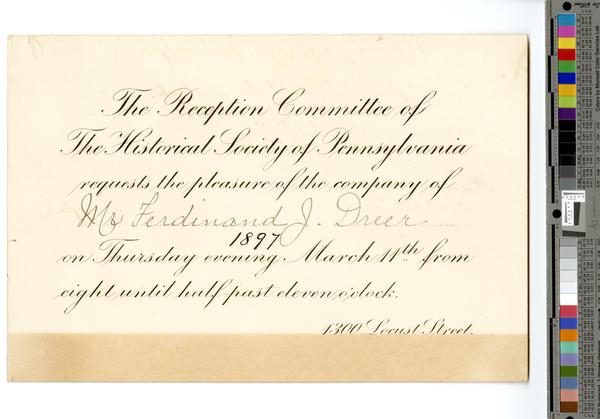 The Reception Committee of
The Historical Society of Pennsylvania
requests the pleasure of the company of
Mr Ferdinand J. Dreer
1897
on Thursday evening. March 11th from
eight until half past eleven o'clock.
1300 Locust Street.